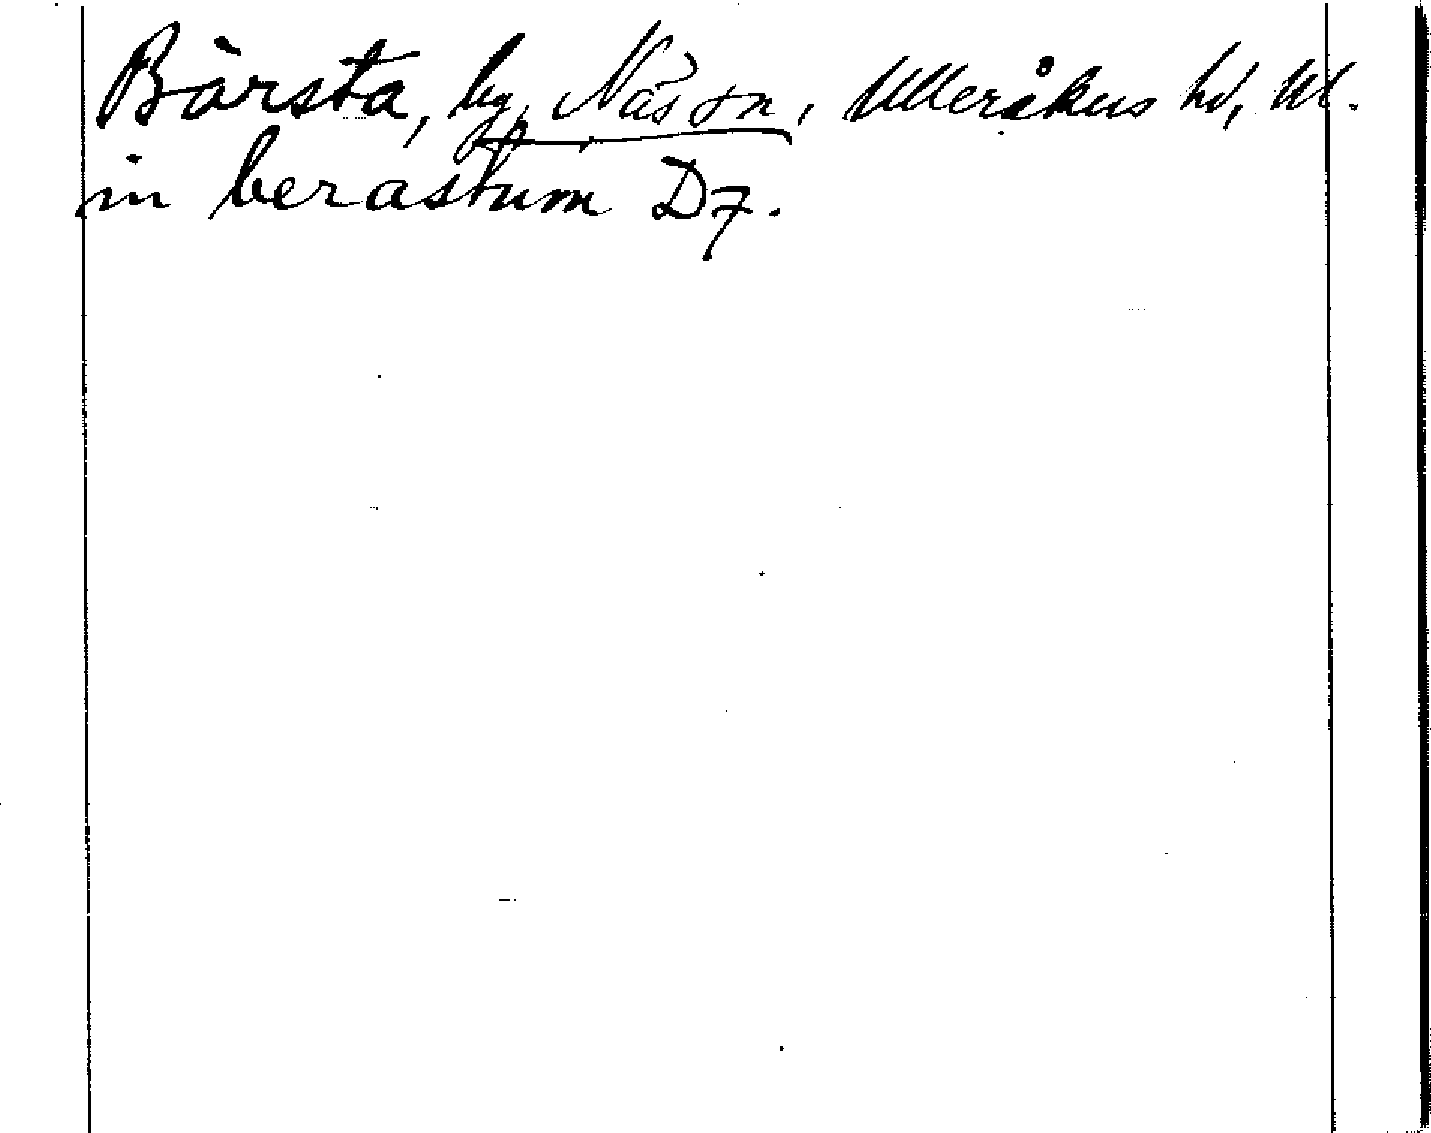 Bärsta, by, Näs sn, Ulleråkers hd, Upl.
in berastum D7.